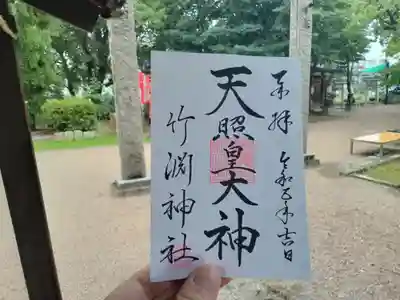 奉拝
令和五年吉日
天照皇大神
竹渕神社